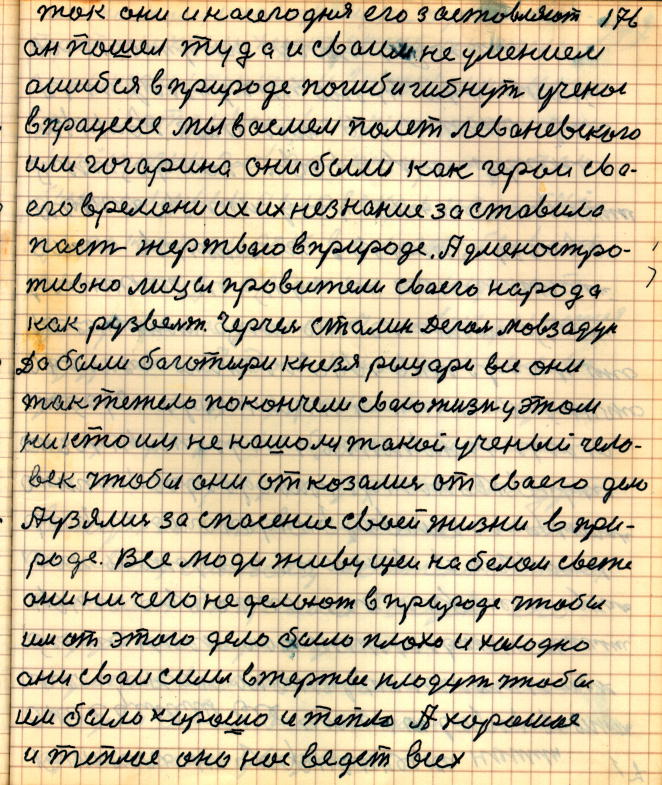 так они и насегодня его заставляют 176
он пошел туда и сваим не умением
ошибся в природе погиб и гибнут учены
в працесе мы восмем полет леваневского
или гогарина они были как герои сва-
его времени их их незнание заставило
пасть жертваю в природе. Адменостро-
тивно лицы провители сваего народа
как рузвелт. Черчел сталин Дегол мовзадун
Да были боготыри князя рыцари все они
так тежело покончели сваю жизн у этом
никто им не нашол такой ученый чело-
век чтобы они отказалис от сваего дело
А узялис за спасение своей жизни в при-
роде. Все люди живущеи на белом свете
они ничего не делоют в природе чтобы
им от этого дело было плохо и холодно
они сваи силы в жертвы кладут чтобы
им было хорошо и тепло А хорошае
и теплое оно нас ведет всех